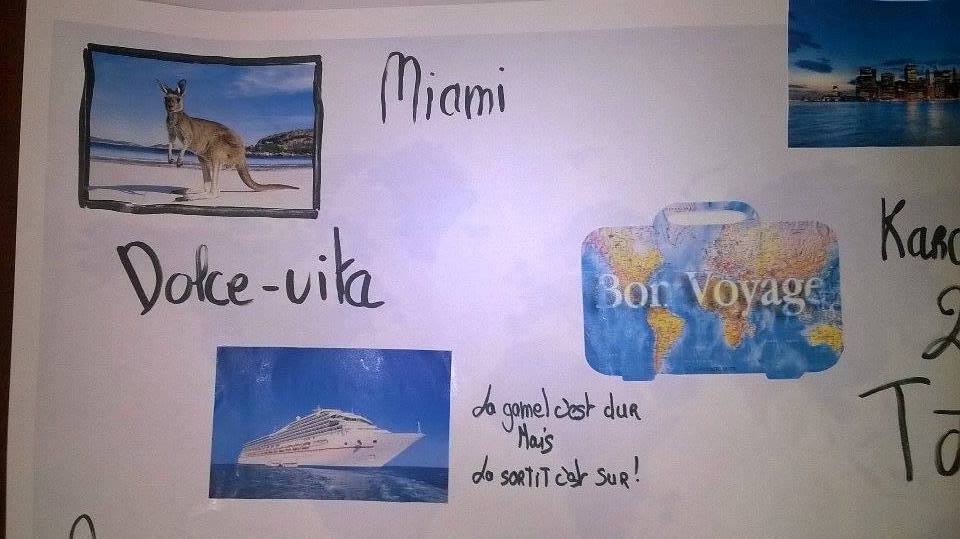 Miami
Dolce-vita
Bon Voyage
La gamel c'est dur
Mais
La sortit c'est sur!